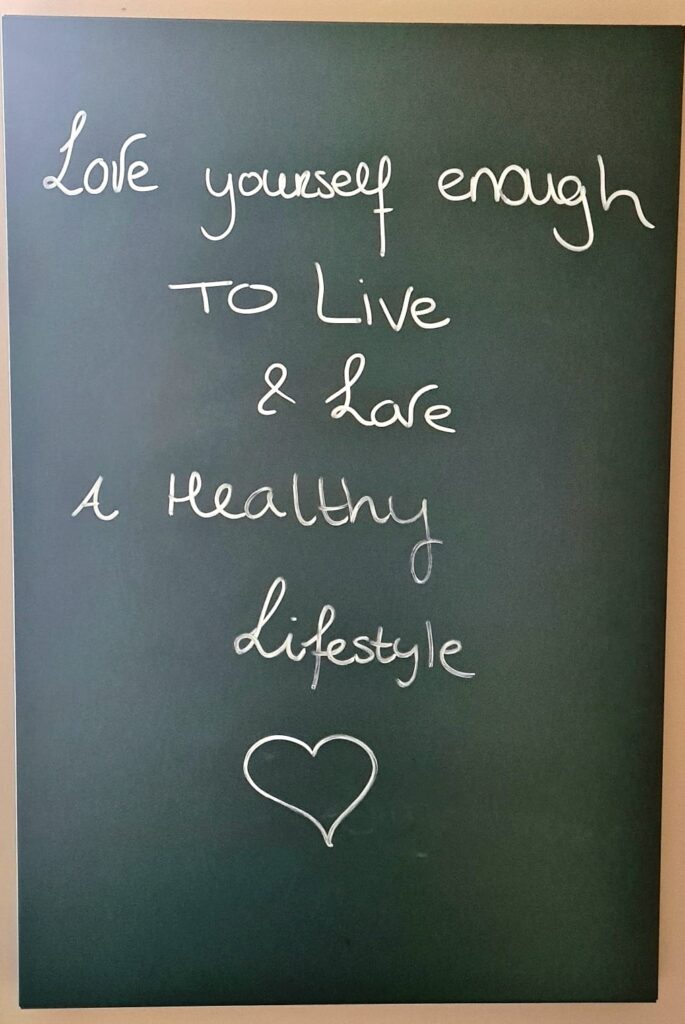 Love yourself enough
TO Live
& Love
A Healthy
Lifestyle